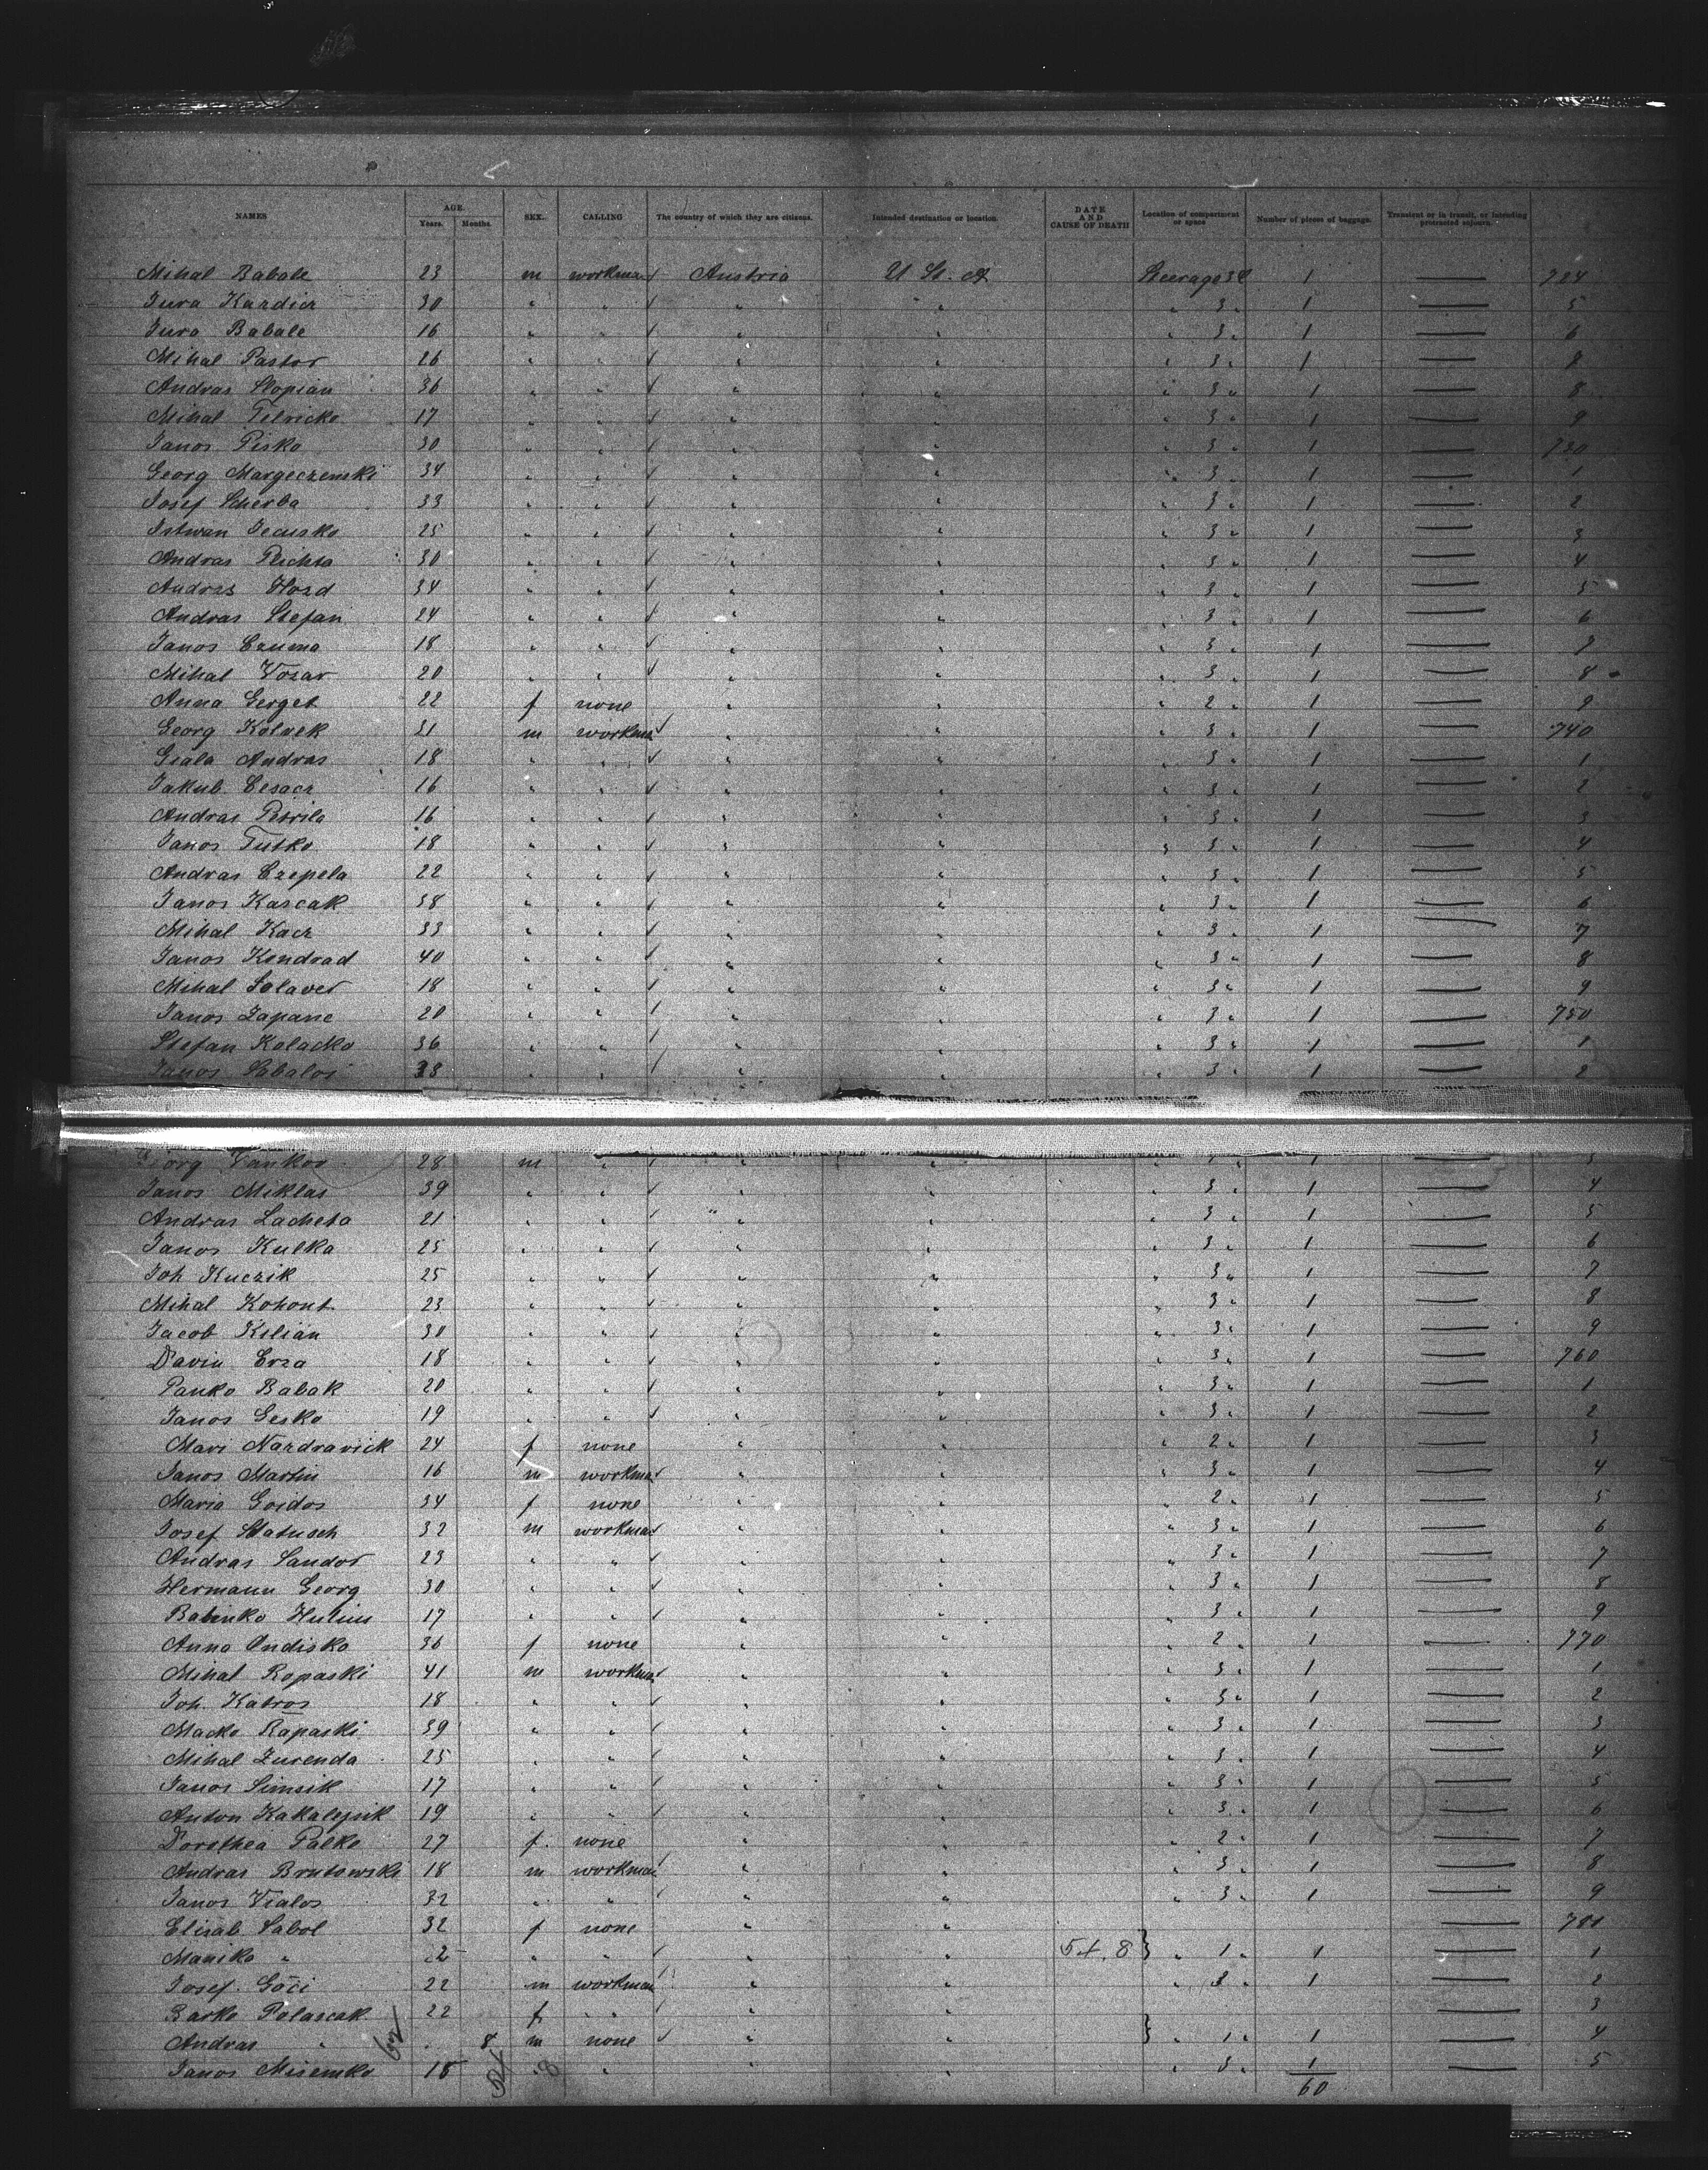 NAMES AGE. Years. Months. SEX. CALLING The country of which they are citizens. Intended destination or location. DATE AND CAUSE OF DEATH Location of compartment or space Number of pieces of baggage. Transient or in transit, or intending protracted sojourn.
Mihal Babale 23 m workman Austria U St. A Steerage 3 1 — 724
Jura Kardicz 30 " " " " " 3 " 1 — 5
Jura Babale 16 " " " " " 3 " 1 — 6
Mihal Pastor 26 " " " " " 3 " 1 — 8
Andras Stopian 36 " " " " " 3 " 1 — 8
Mihal Tilricko 17 " " " " " 3 " 1 — 9
Janos Pisko 30 " " " " " 3 " 1 — 730
Georg Margeczenski 34 " " " " " 3 " 1 — 1
Josef Scherba 33 " " " " " 3 " 1 — 2
Istwan Jecusko 25 " " " " " 3 " 1 — 3
Andras Plichta 30 " " " " " 3 " 1 — 4
Andras Hozd 34 " " " " " 3 " 1 — 5
Andras Stefan 24 " " " " " 3 " 1 — 6
Janos Czuma 18 " " " " " 3 " 1 — 7
Mihal Vozar 20 " " " " " 3 " 1 — 8
Anna Gerget 22 f none " " " 2 " 1 — 9
Georg Kolvek 31 m workman " " " 3 " 1 — 740
Giala Andras 18 " " " " " 3 " 1 — 1
Jakub Cesacz 16 " " " " " 3 " 1 — 2
Andras Petrila 16 " " " " " 3 " 1 — 3
Janos Tutko 18 " " " " " 3 " 1 — 4
Andras Czepela 22 " " " " " 3 " 1 — 5
Janos Karcak 38 " " " " " 3 " 1 — 6
Mihal Kacz 33 " " " " " 3 " 1 — 7
Janos Kondrad 40 " " " " " 3 " 1 — 8
Mihal Solaver 18 " " " " " 3 " 1 — 9
Janos Zapane 20 " " " " " 3 " 1 — 750
Stefan Kolacko 36 " " " " " 3 " 1 — 1
Janos Sabalos 33 " " " " " 3 " 1 — 2
Georg Vankov 28 m " " " " 1 — 3
Janos Miklas 39 " " " " " 3 " 1 — 4
Andras Lacheta 21 " " " " " 3 " 1 — 5
Janos Kulka 25 " " " " " 3 " 1 — 6
Joh Kuczik 25 " " " " " 3 " 1 — 7
Mihal Kohout 23 " " " " " 3 " 1 — 8
Jacob Kilian 30 " " " " " 3 " 1 — 9
Daviu Erza 18 " " " " " 3 " 1 — 760
Panko Babak 20 " " " " " 3 " 1 — 1
Janos Gesko 19 " " " " " 3 " 1 — 2
Mari Nazdravick 24 f none " " " 2 " 1 — 3
Janos Martin 16 m workman " " " 3 " 1 — 4
Maria Goidos 34 f none " " " 2 " 1 — 5
Josef Statusch 32 m workman " " " 3 " 1 — 6
Andras Sandor 23 " " " " " 3 " 1 — 7
Hermann Georg 30 " " " " " 3 " 1 — 8
Babinko Hutim 17 " " " " " 3 " 1 — 9
Anna Ondisko 36 f none " " " 2 " 1 — 770
Mihal Ropaski 41 m workman " " " 3 " 1 — 1
Joh. Katros 18 " " " " " 3 " 1 — 2
Macko Rapaski 39 " " " " " 3 " 1 — 3
Mihal Zurenda 25 " " " " " 3 " 1 — 4
Janos Simsik 17 " " " " " 3 " 1 — 5
Anton Kakalejsik 19 " " " " " 3 " 1 — 6
Dorothea Palko 27 f. none " " " 2 " 1 — 7
Andras Brutowski 18 m workman " " " 3 " 1 — 8
Janos Vialos 32 " " " " " 3 " 1 — 9
Elisab Sabol 32 f none " " — 780
Maniko " 2 " " " " 5+.8 } " 1 " 1 — 1
Josef Goči 22 m workman " " " 3 " 1 — 2
Barko Polascak 22 f " " " — 3
Andras " 8 m none " " } " 1 " 1 — 4
Janos Misemko 18 " " " " " 3 " 1 — 5
62 54 8 60